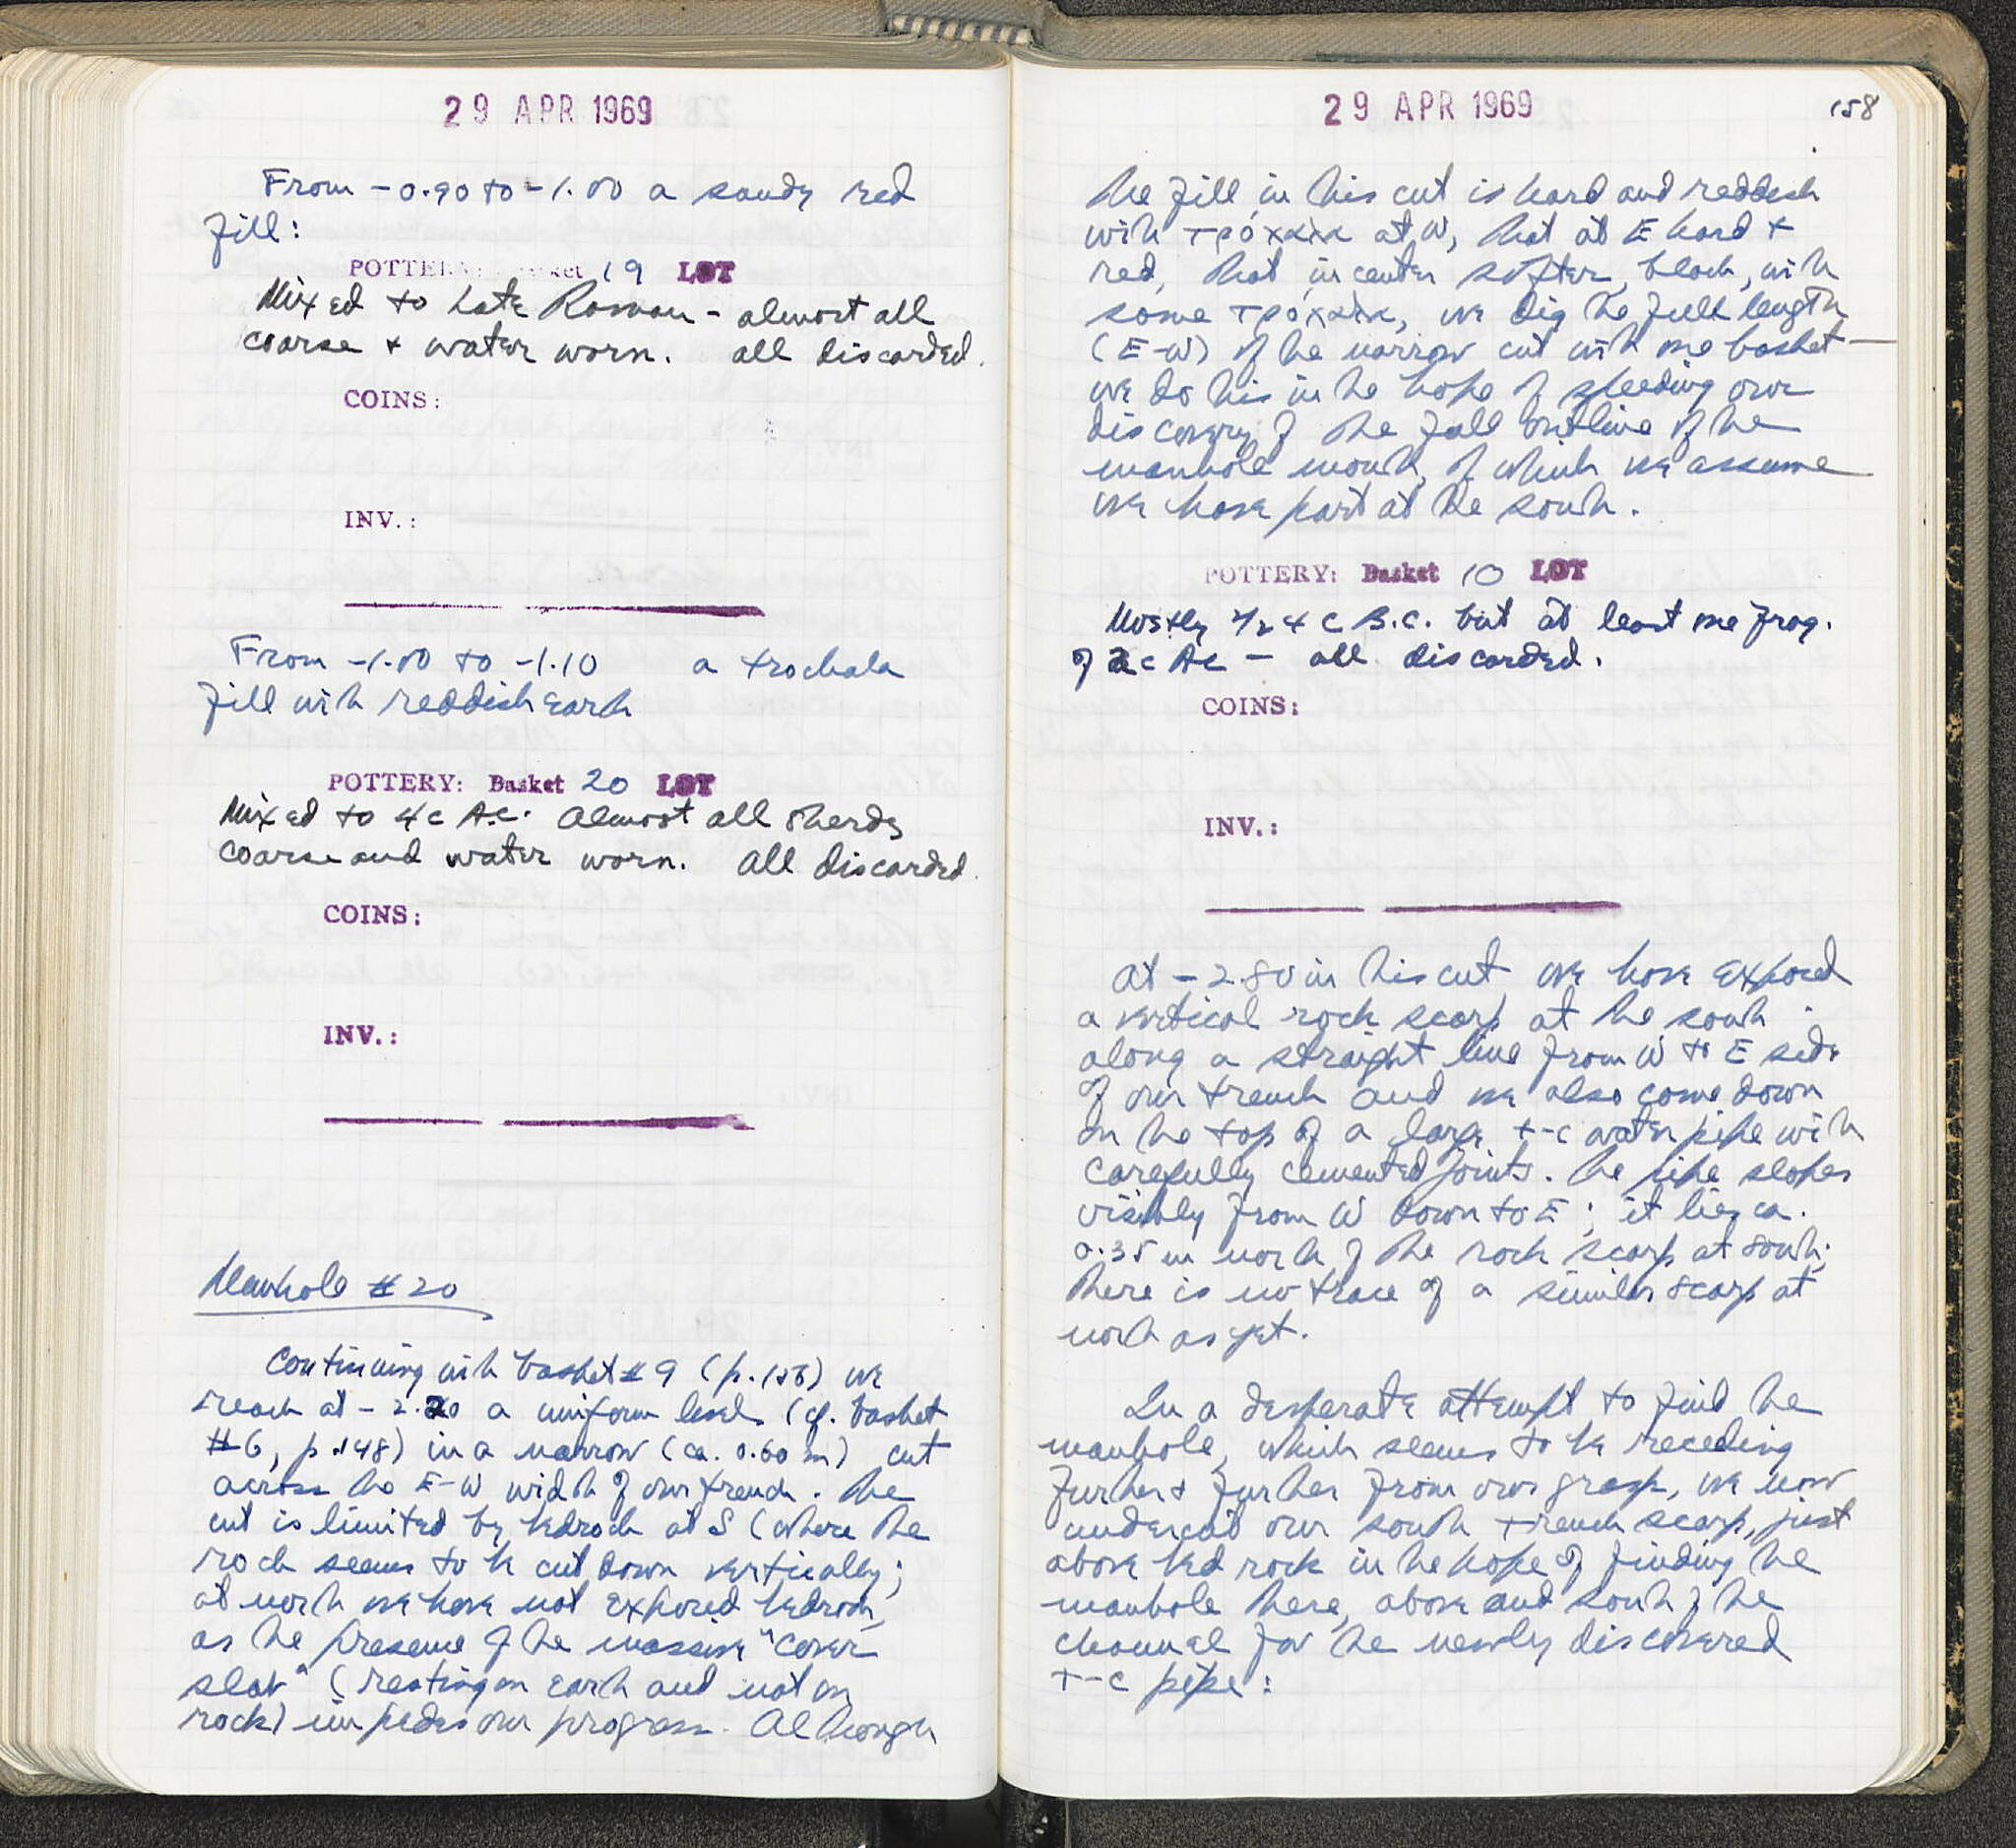 29 APR 1969
From -0.90 to -1.00 a sandy red
fill:
POTTERY: Basket 19 LOT
Mixed to Late Roman - almost all
coarse + water worn. all discarded.
COINS:
INV.:
From -1.00 to -1.10 a trochala
fill with reddish earth
POTTERY: Basket 20 LOT
Mixed to 4c A.C. Almost all sherds
coarse and water worn. All discarded.
COINS:
INV.:
Manhole #20
Continuing with basket #9 (p. 156) we
reach at - 2.20 a uniform level (cf. basket
#6, p. 148) in a narrow (ca. 0.60 m) cut
across the E-W width of our trench. The
cut is limited by bedrock at S (where the
rock seems to be cut down vertically;
at north we have not exposed bedrock,
as the presence of the massive "cover
slab" (resting on earth and not on
rock) impedes our progress. Although
29 APR 1969
158
the fill in this cut is hard and reddish
with τρόχαλα at W, that at E hard +
red, that in center softer, black, with
some τρόχαλα, we dig the full length
(E-W) of the narrow cut with one basket —
we do this in the hope of speeding our
discovery of the full outline of the
manhole mouth, of which we assume
we have part at the south.
POTTERY: Basket 10 LOT
Mostly 4/2 4 c B.C. but at least one frag.
of 2 c AC — all discarded.
COINS:
INV.:
At - 2.80 in this cut we have exposed
a vertical rock scarp at the south
along a straight line from W to E side
of our trench and we also come down
on the top of a large t-c water pipe with
carefully cemented joints. The pipe slopes
visibly from W down to E; it lies ca.
0.35 m north of the rock scarp at south;
there is no trace of a similar scarp at
north as yet.
In a desperate attempt to find the
manhole, which seems to be receding
further + further from our grasp, we now
undercut our south trench scarp, just
above bedrock in the hope of finding the
manhole there, above and south of the
channel for the newly discovered
T-C pipe: